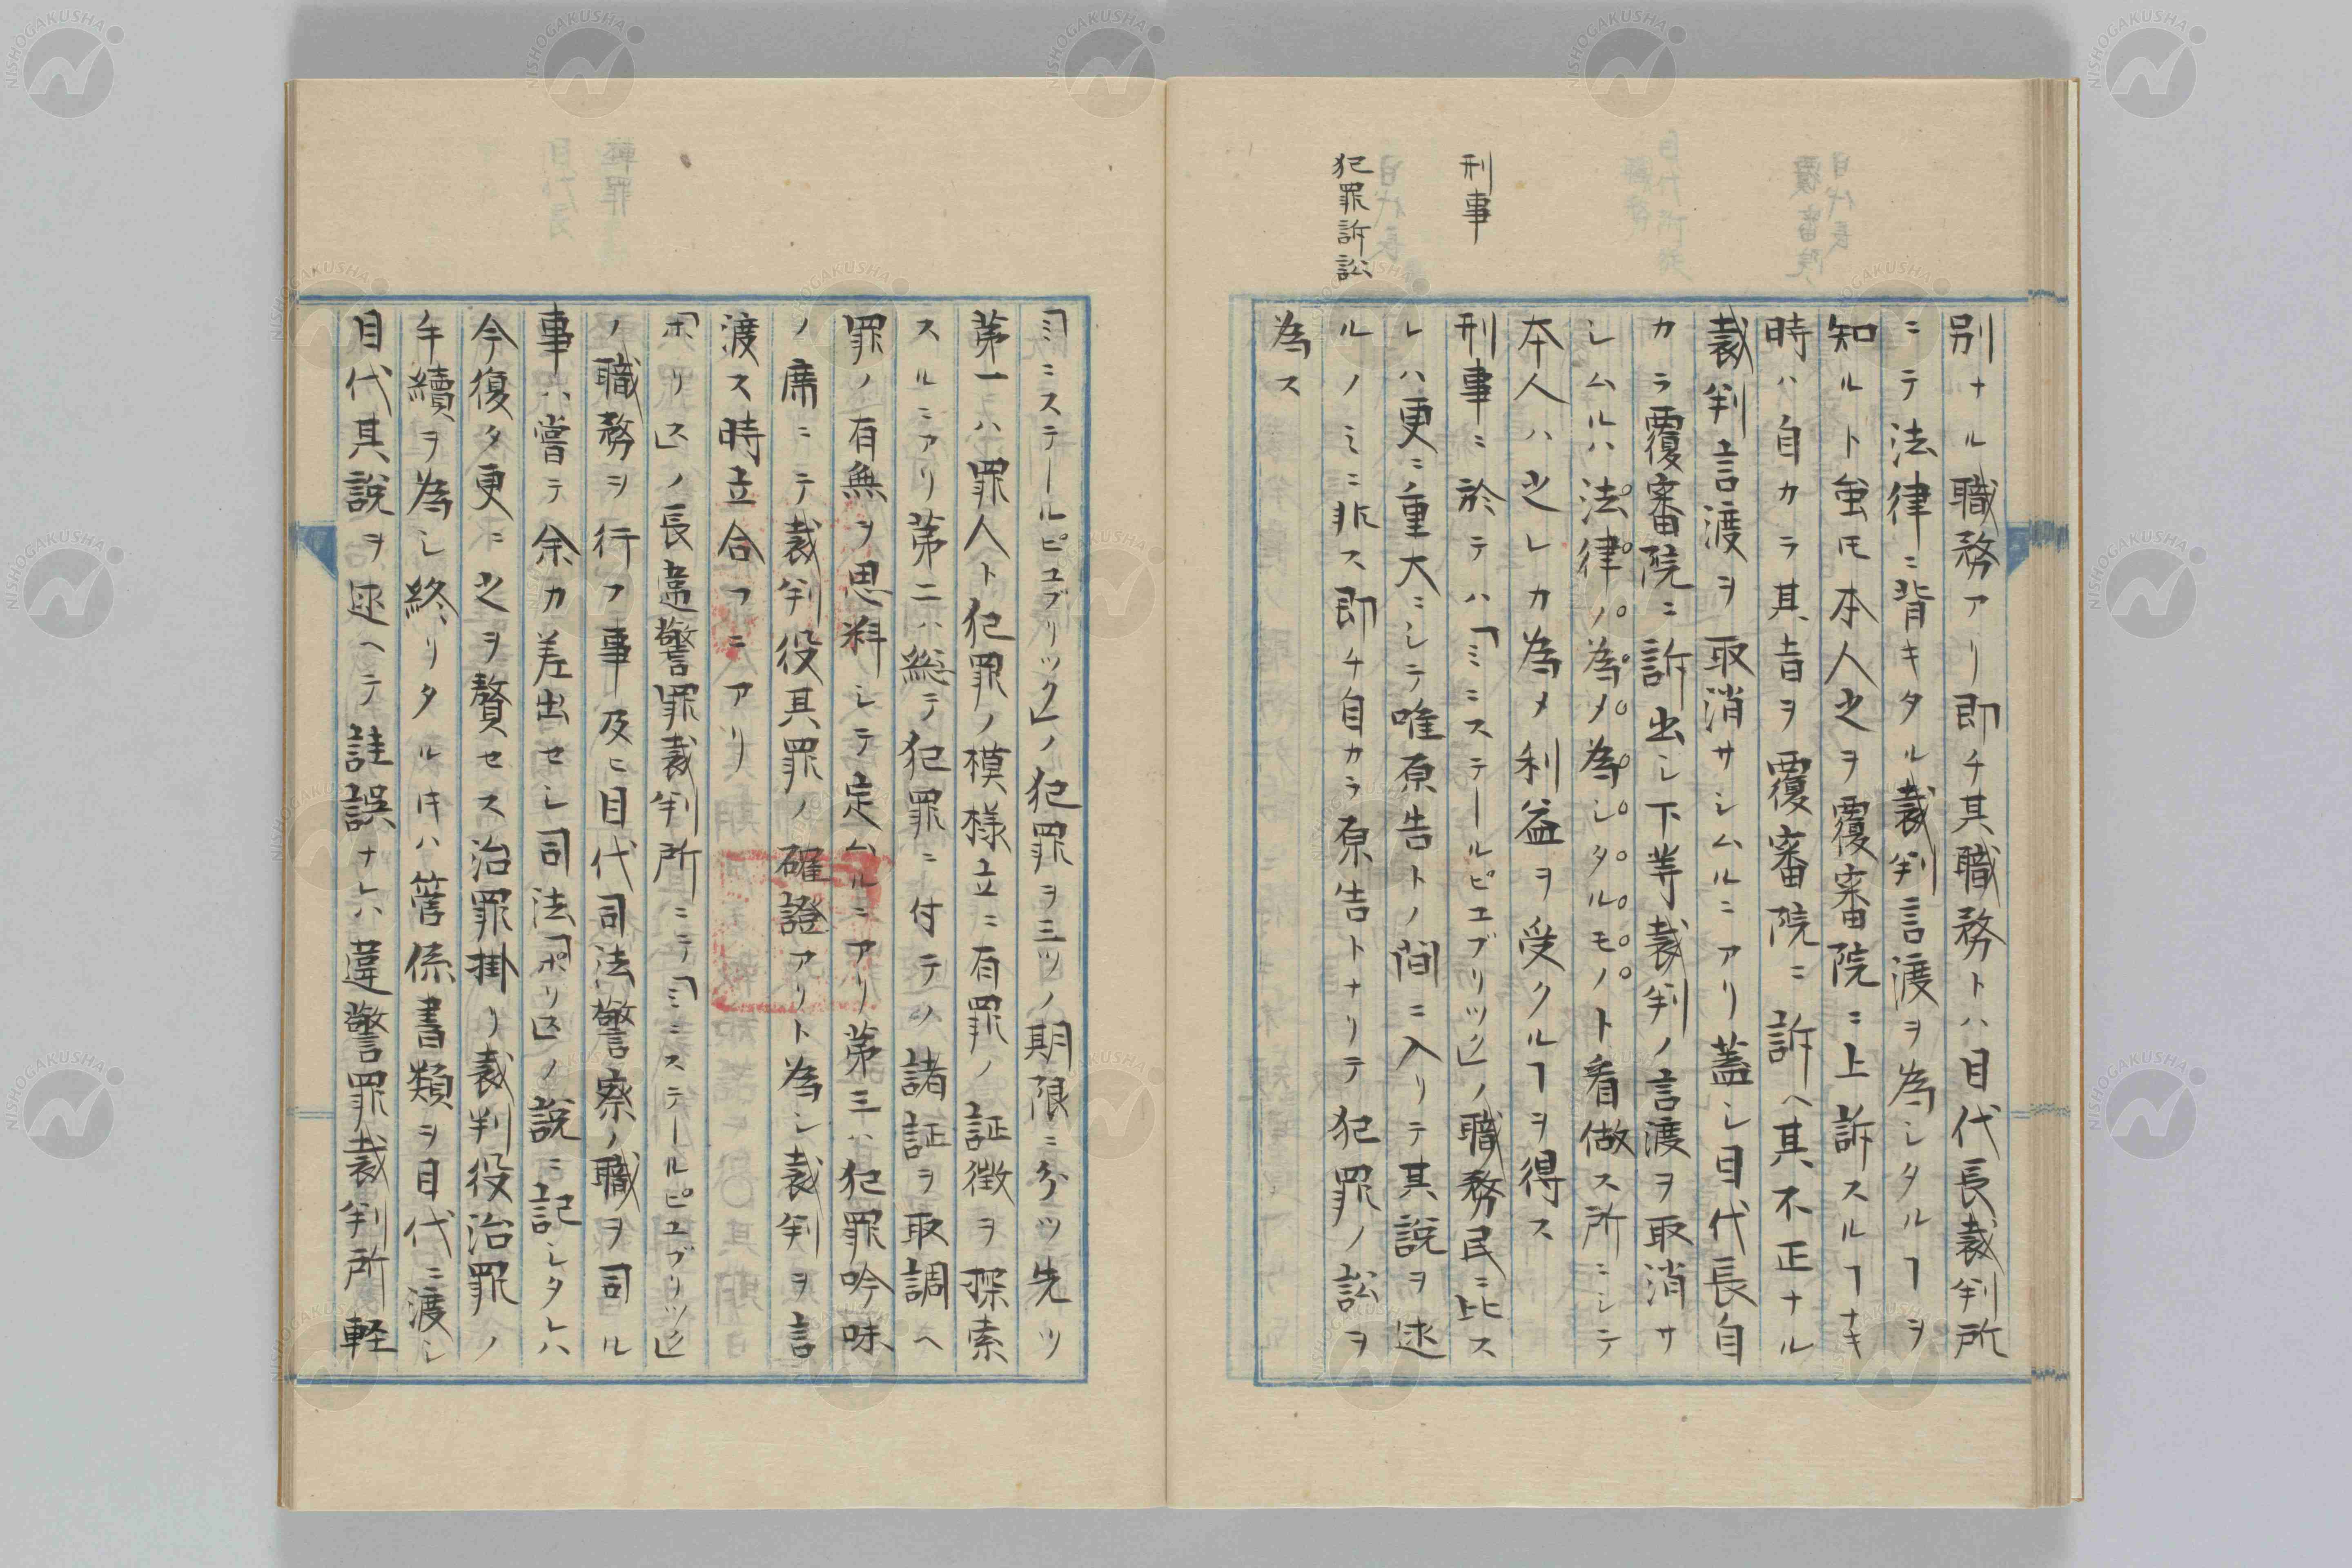 別ナル職務アリ即チ其職務トハ目代長裁判所
ニテ法律ニ背キタル裁判言渡ヲ為シタルヿヲ
知ルト雖𪜈本人之ヲ覆審院ニ上訴スルヿナキ
時ハ自カラ其旨ヲ覆審院ニ訴ヘ其不正ナル
裁判言渡ヲ取消サシムルニアリ蓋シ目代長自
カラ覆審院ニ訴出シ下等裁判ノ言渡ヲ取消サ
シムルハ法律ノ為メ為シタルモノト看做ス所ニシテ
本人ハ之レカ為メ利益ヲ受クルヿヲ得ス
刑事
刑事ニ於テハ「ミニステールピユブリツク」ノ職務民ニ比ス
レハ更ニ重大ニシテ唯原告トノ間ニ入リテ其説ヲ述
犯罪訴訟
ルノミニ非ス即チ自カラ原告トナリテ犯罪ノ訟ヲ
為ス
「ミニステールピユブリツク」ノ犯罪ヲ三ツノ期限ニ分ツ先ツ
第一ハ罪人ト犯罪ノ模様立ニ有罪ノ証徴ヲ探索
スルニアリ第二ハ総テ犯罪ニ付テノ諸証ヲ取調ヘ
罪ノ有無ヲ思料シテ定ムルニアリ第三ハ犯罪吟味
ノ席ニテ裁判役其罪ノ確證アリト為シ裁判ヲ言
渡ス時立合フニアリ
「ポリス」ノ長違警罪裁判所ニテ「ミニステールピユブリツク」
ノ職務ヲ行フ事及ヒ目代司法警察ノ職ヲ司ル
事ハ嘗テ余カ差出セシ司法「ポリス」ノ説ニ記シタレハ
今復タ更ニ之ヲ贅セス治罪掛リ裁判役治罪ノ
手續ヲ為シ終リタル𪜈ハ管係書類ヲ目代ニ渡シ
目代其説ヲ述ヘテ詿誤ナレハ違警罪裁判所軽